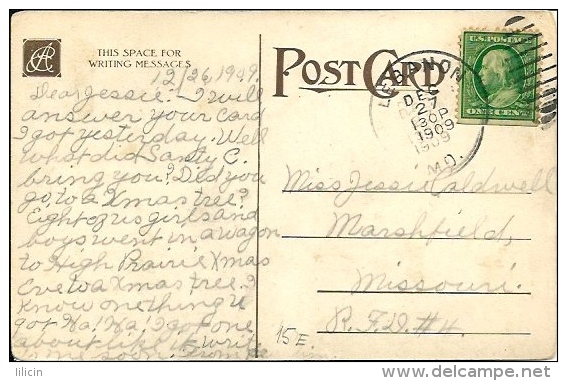 THIS SPACE FOR
WRITING MESSAGES
POST CARD
U.S. POSTAGE
ONE CENT
LEBANON
DEC
27
130P
1909
1909
MO.
12/26, 1909.
Dear Jessie:- I will
answer your card
I got yesterday. Well
what did Santy C.
bring you? Did you
go to a Xmas tree?
Eight of us girls and
boys went in a wagon
to High Prairie Xmas
Eve to a Xmas tree. I
know one thing u
got Ha! Ha! I got one
about like it. write
me soon. From
Miss Jessie Caldwell
Marshfield,
Missouri.
R.F.D. #4.
15 E.
lilicin
delcampe.net